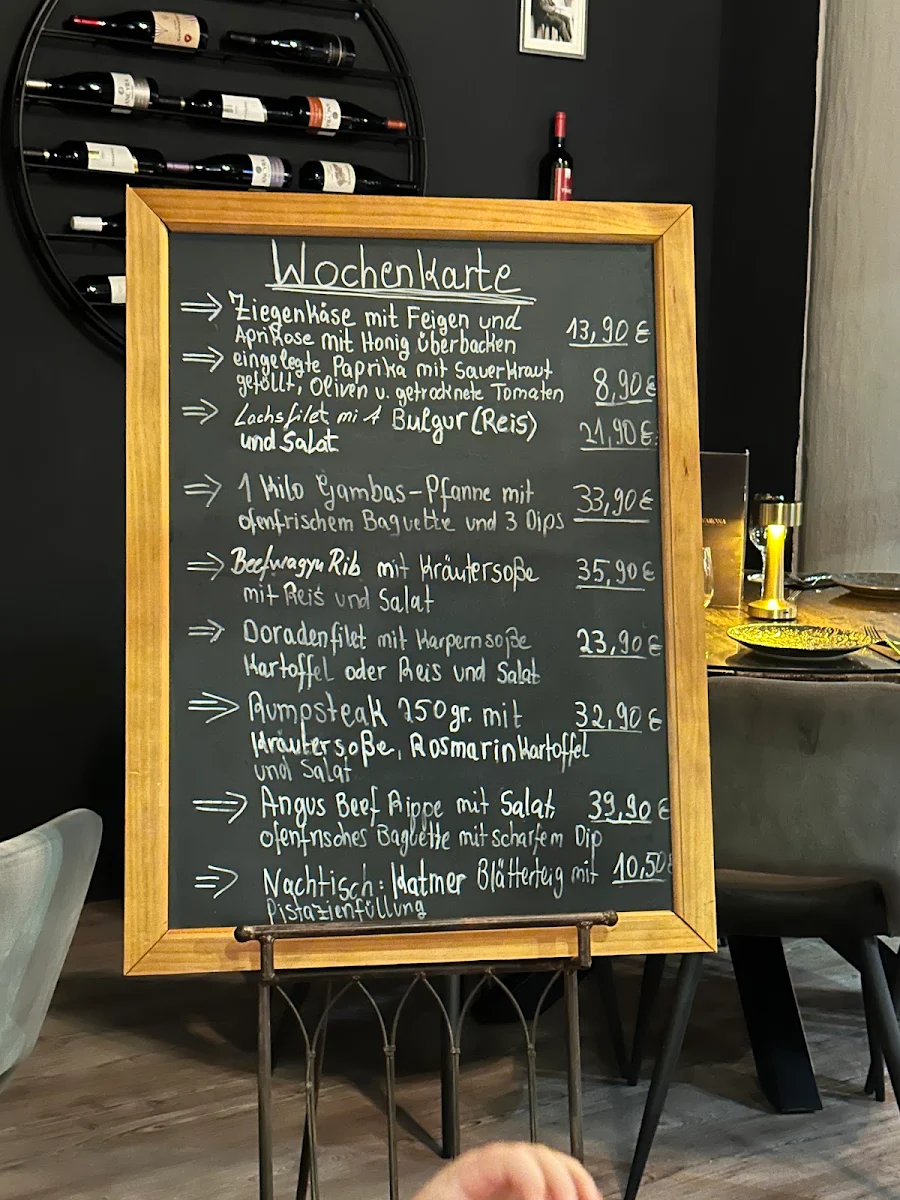 Wochenkarte
⇒ Ziegenkäse mit Feigen und
Aprikose mit Honig überbacken 13,90 €
⇒ eingelegte Paprika mit Sauerkraut
gefüllt, Oliven u. getrocknete Tomaten 8,90 €
⇒ Lachsfilet mit Bulgur (Reis)
und Salat 21,90 €
⇒ 1 Kilo Gambas-Pfanne mit 33,90 €
ofenfrischem Baguette und 3 Dips
⇒ Beefwagyu Rib mit Kräutersoße 35,90 €
mit Reis und Salat
⇒ Doradenfilet mit Karpernsoße 23,90 €
Kartoffel oder Reis und Salat
⇒ Rumpsteak 250gr. mit 32,90 €
Kräutersoße, Rosmarinkartoffel
und Salat
⇒ Angus Beef Rippe mit Salat, 39,90 €
ofenfrisches Baguette mit scharfem Dip
⇒ Nachtisch: Katmer Blätterteig mit 10,50€
Pistazienfüllung